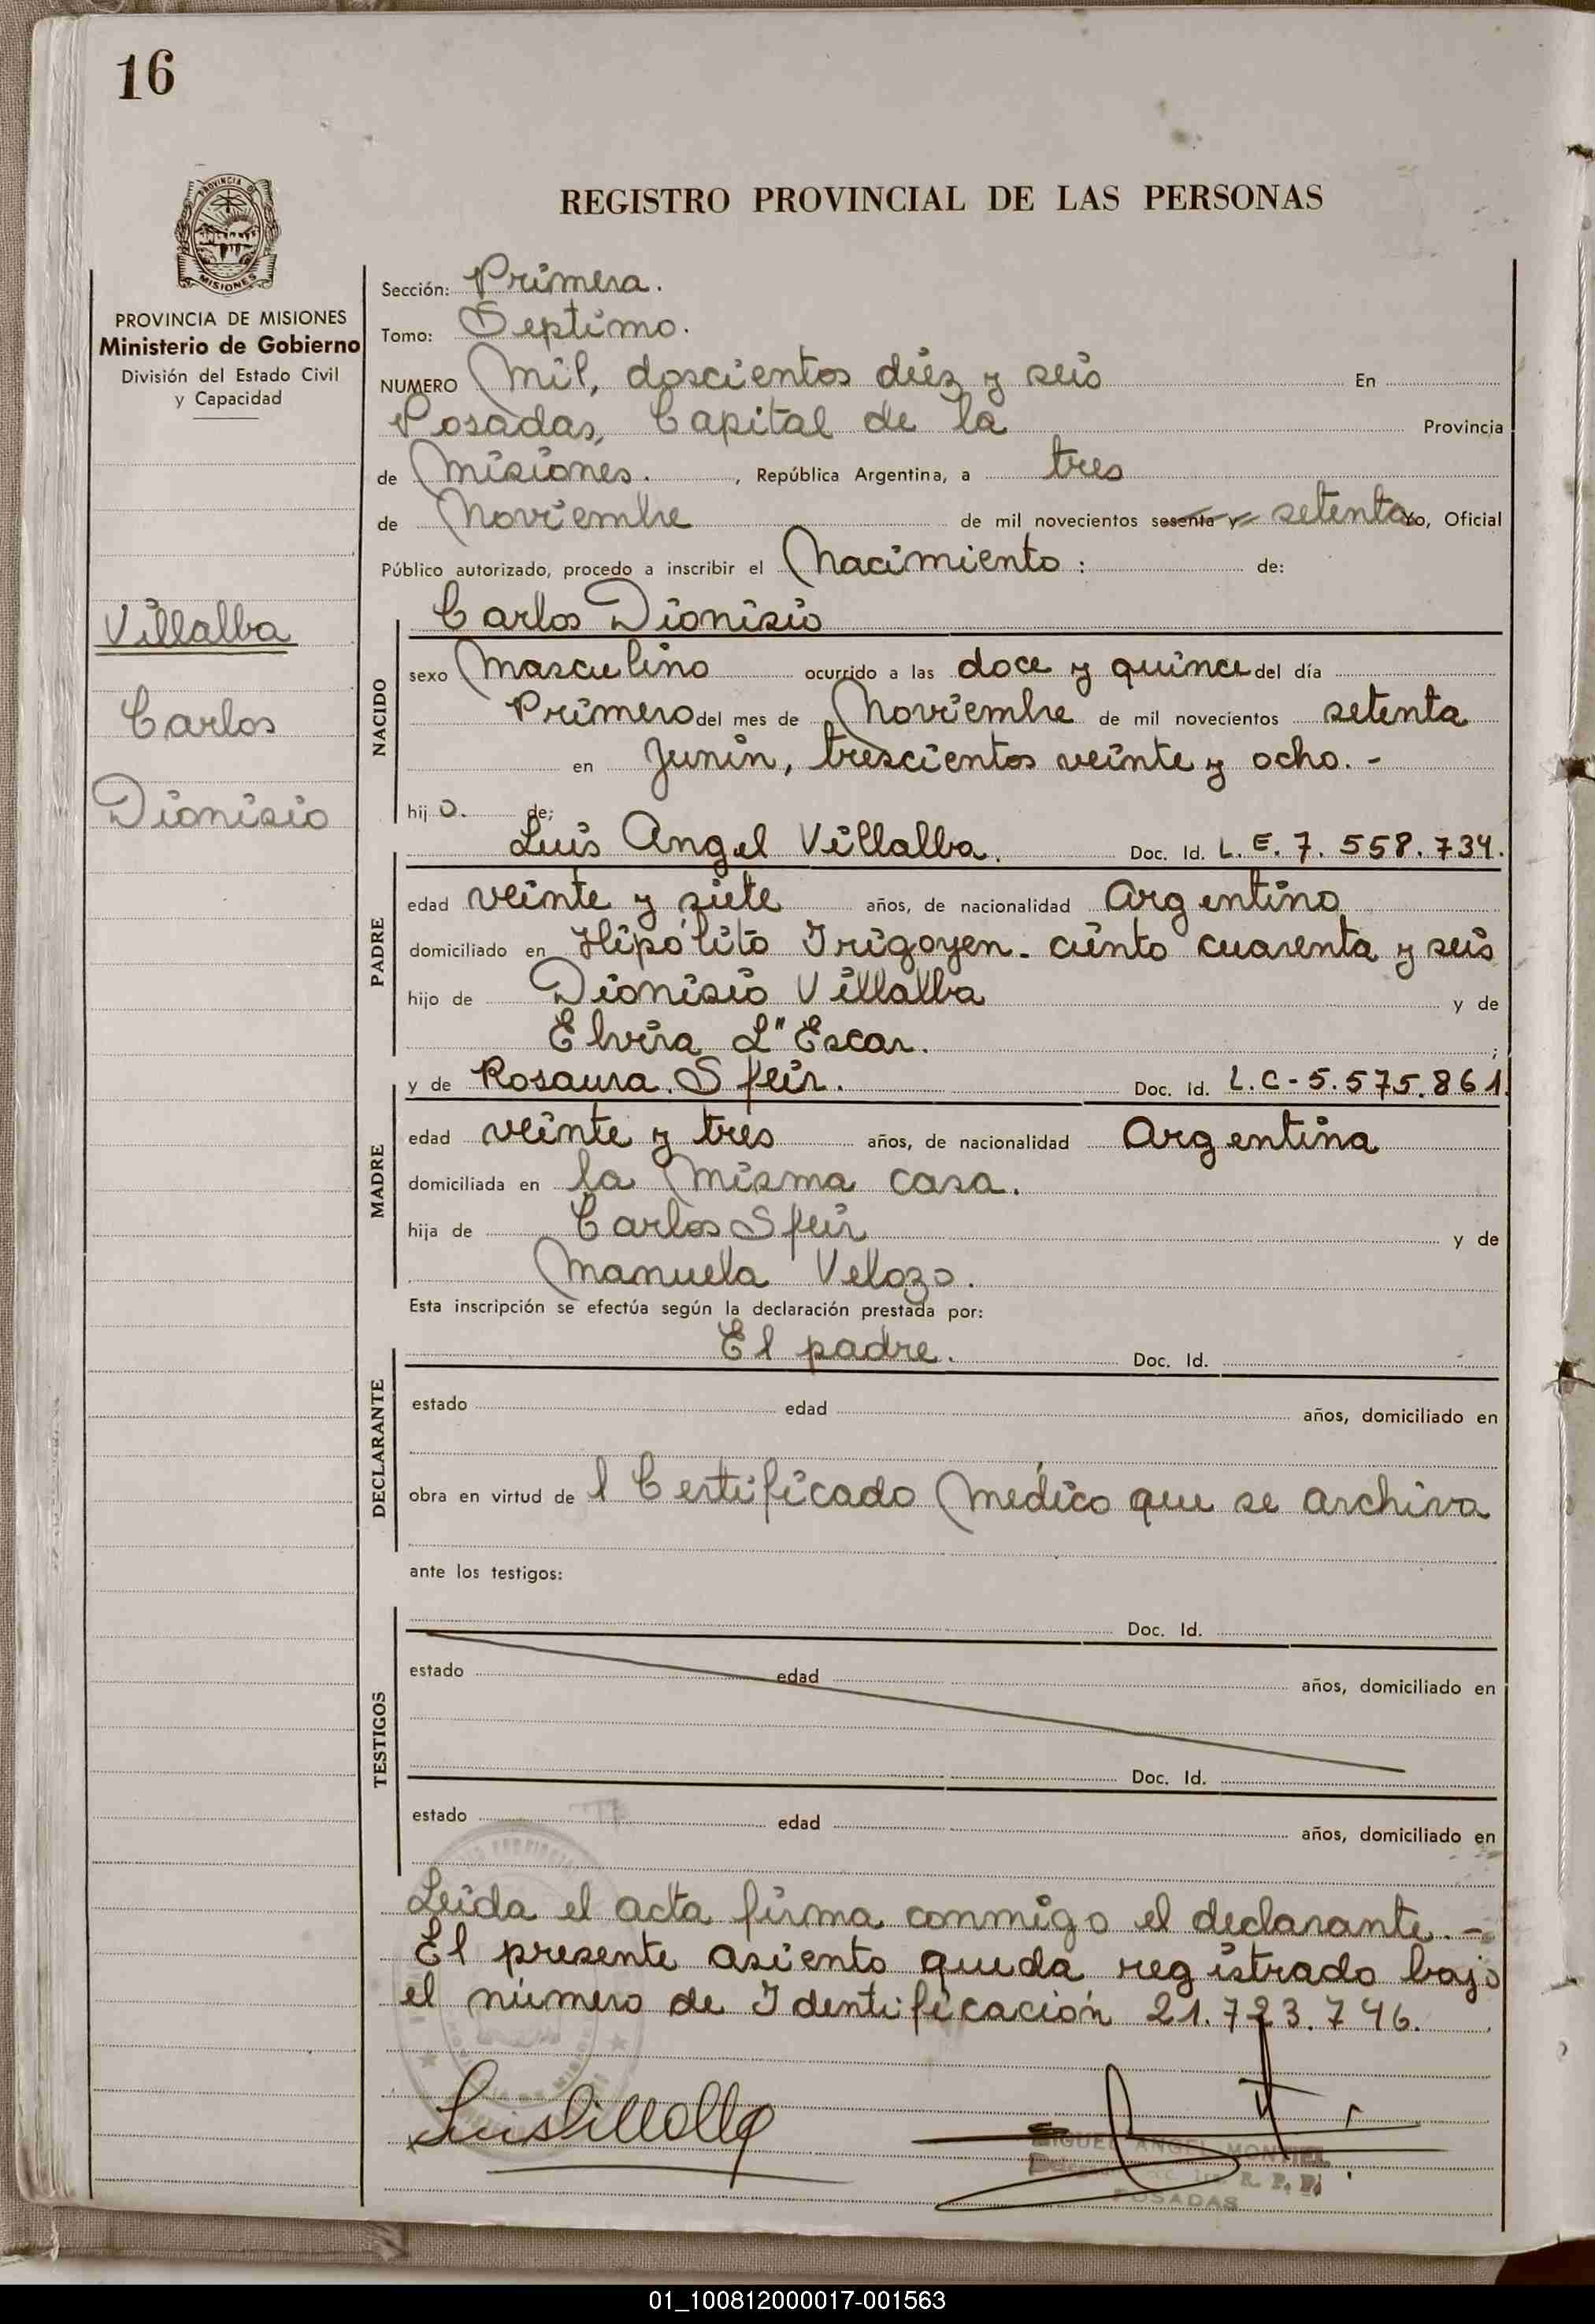 16
PROVINCIA DE
MISIONES
PROVINCIA DE MISIONES
Ministerio de Gobierno
División del Estado Civil
y Capacidad
Villalba
Carlos
Dionisio
REGISTRO PROVINCIAL DE LAS PERSONAS
Sección: Primera.
Tomo: Septimo.
NUMERO Mil, doscientos diéz y seis En
Posadas, Capital de la Provincia
de Misiones. , República Argentina, a tres
de Noviembre de mil novecientos sesenta y setenta Yo, Oficial
Público autorizado, procedo a inscribir el Nacimiento : de:
Carlos Dionisio
NACIDO
sexo Masculino ocurrido a las doce y quince del día
Primero del mes de Noviembre de mil novecientos setenta
en Junin, trescientos veinte y ocho. -
hij o. de;
Luis Angel Villalba. Doc. Id. L. E. 7. 558. 734.
PADRE
edad veinte y siete años, de nacionalidad Argentino
domiciliado en Hipólito Irigoyen - ciento cuarenta y seis
hijo de Dionisio Villalba y de
Elvira L" Escar. ;
y de Rosaura. Sfeir. Doc. Id. L. C - 5. 575. 861.
MADRE
edad veinte y tres años, de nacionalidad Argentina
domiciliada en la Misma casa.
hija de Carlos Sfeir y de
Manuela Velozo.
Esta inscripción se efectúa según la declaración prestada por:
El padre. Doc. Id.
DECLARANTE
estado edad años, domiciliado en
obra en virtud de l Certificado Médico que se archiva
ante los testigos:
TESTIGOS
Doc. Id.
estado edad años, domiciliado en
Doc. Id.
estado edad años, domiciliado en
Leida el acta firma conmigo el declarante. -
El presente asiento queda registrado bajo
el número de Identificación 21. 723. 746.
Luis Villalba
MIGUEL ANGEL MONTIEL
R. P. P.
POSADAS
01_100812000017-001563